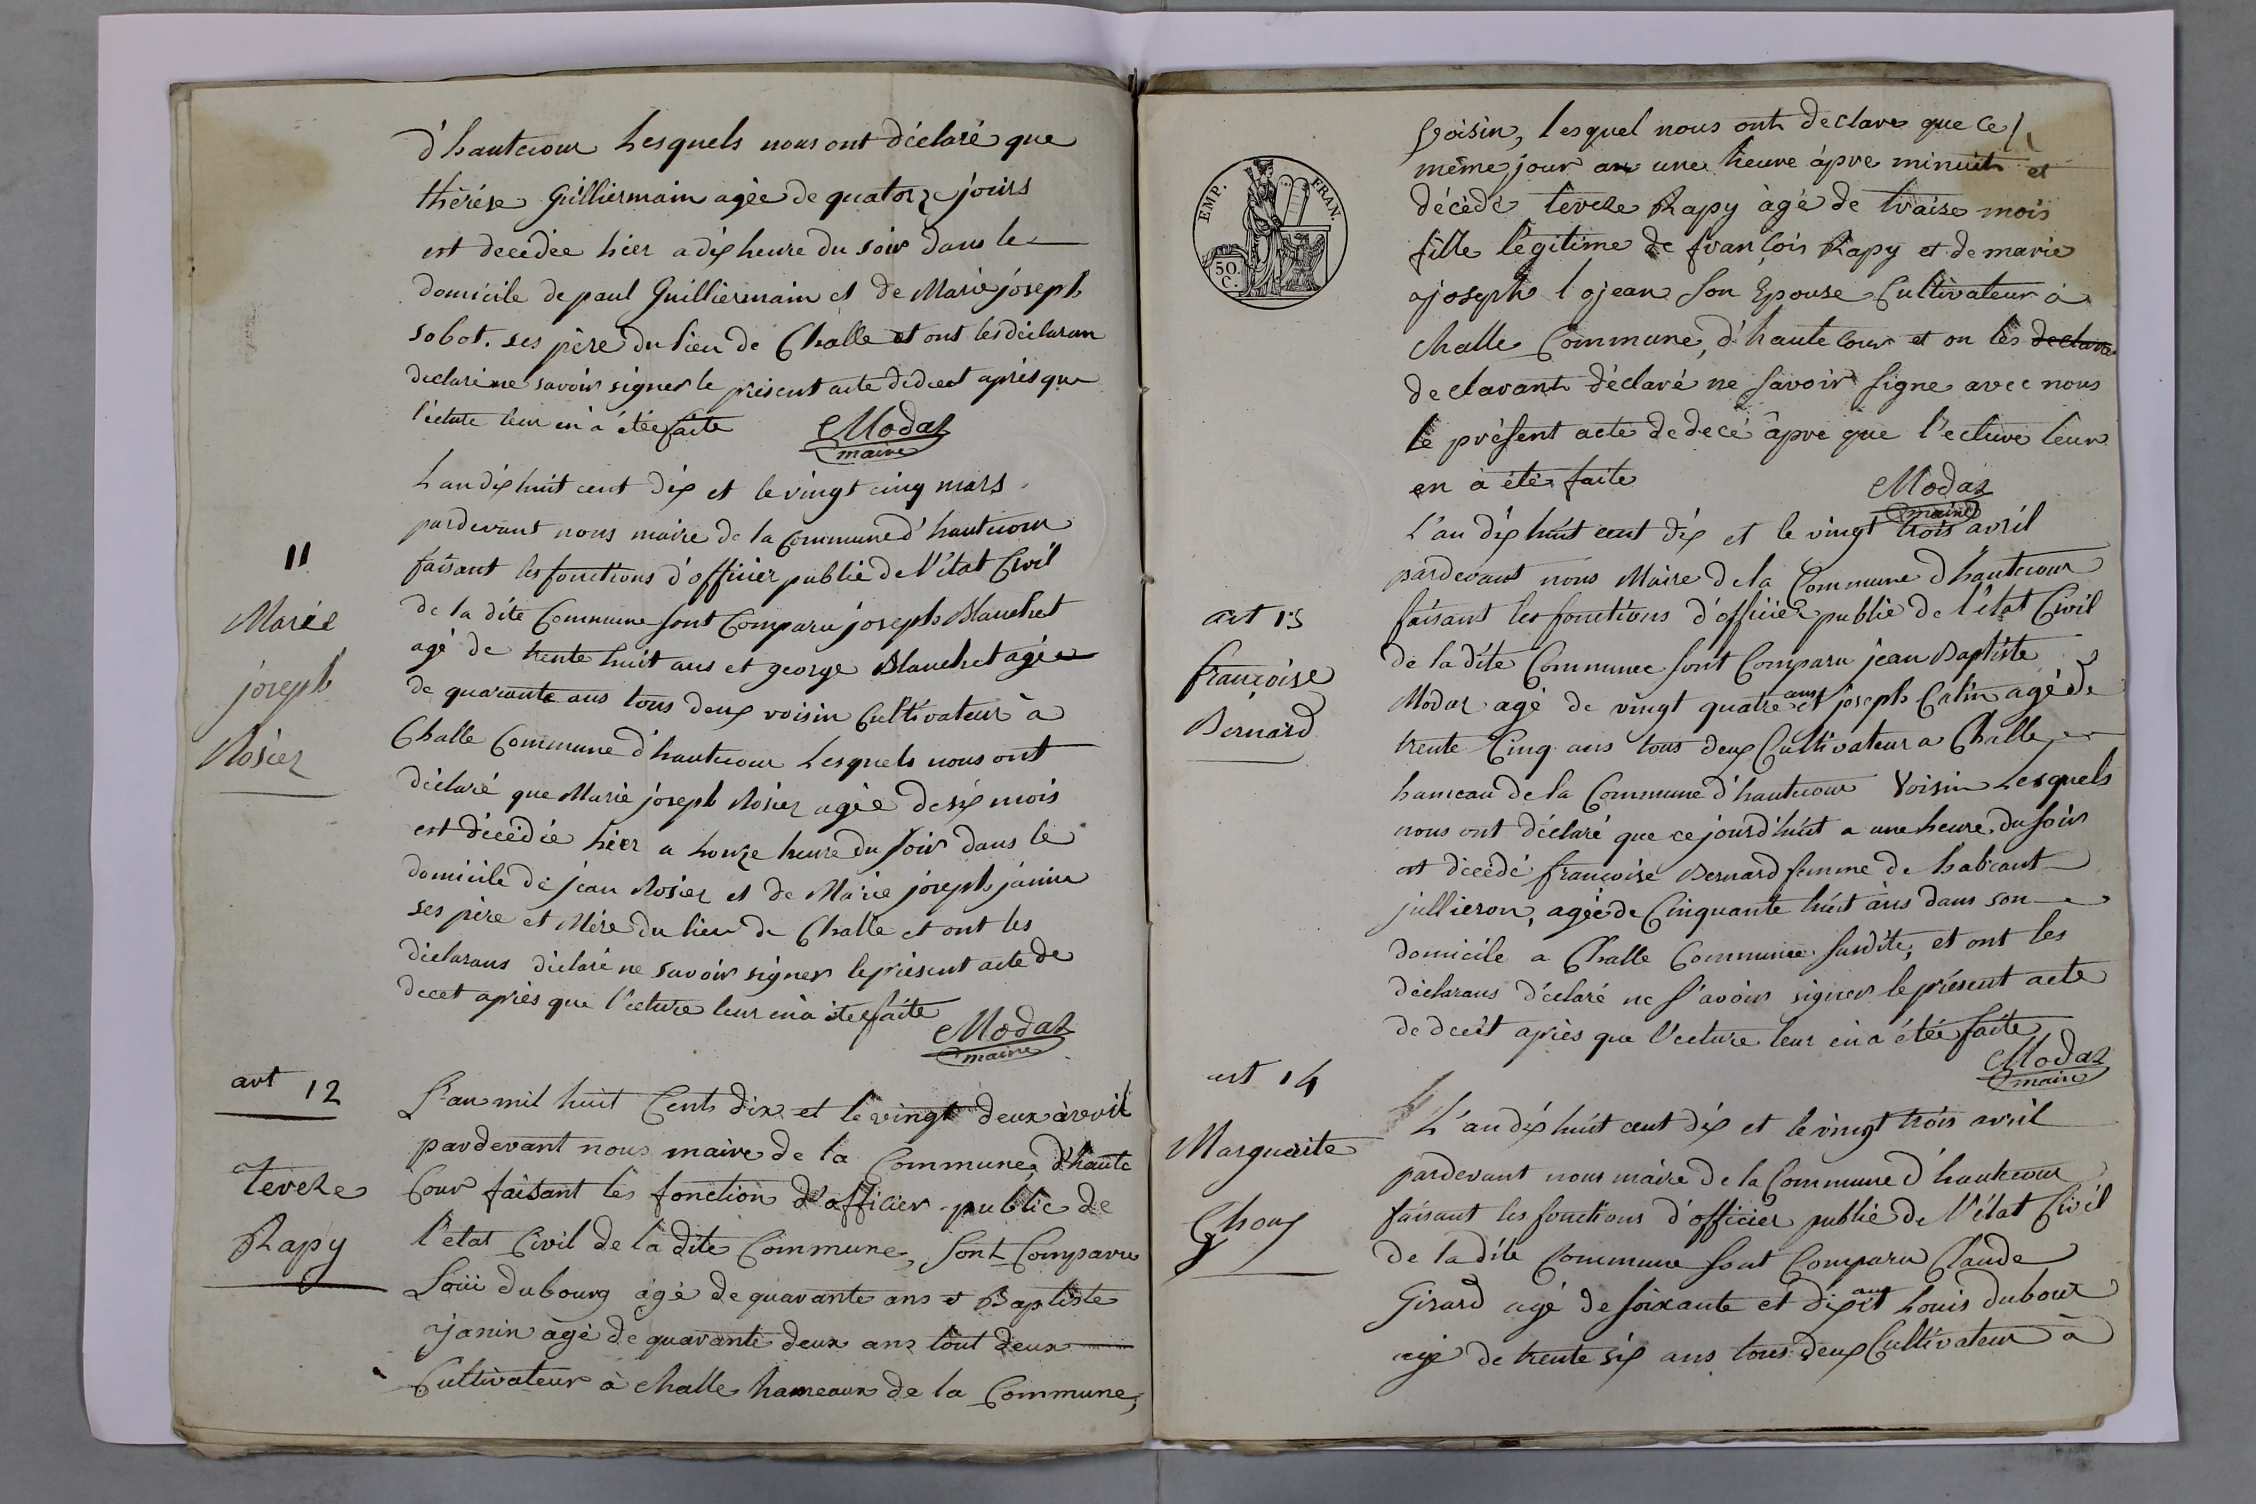 d'hautecour Lesquels nous ont déclaré que
thérése Guilliermain agée de quatorze jours
est decédée hier a dix heure du soir dans le
domicile de paul Guilliermain et de Marie joseph
sobot. ses père du lieu de Challe et ont les déclaran
declaré ne savoir signer le présent acte de decet après que
l'ecture leur en à étée faite
Modaz
maire
11
Marie
joseph
Rosiez
L an dix huit cent dix et le vingt cinq mars
pardevant nous maire de la Commune d'hautecour
faisant les fonctions d'officier public de l'état Civil
de la dite Commune sont Comparu joseph Blanchet
agé de trente huit ans et george Blanchet agée
de quarante ans tous deux voisin Cultivateur à
Challe Commune d'hautecour Lesquels nous ont
déclaré que Marie joseph Rosiez agée de six mois
est décédée hier a honze heure du soir dans le
domicile de jean Rosiez et de Marie joseph janin
ses père et Mére du lieu de Challe et ont les
déclarans déclaré ne savoir signer le présent acte de
decet après que l'ecture leur en à étée faite
Modaz
maire
art 12
Tereze
Rapy
L'an mil huit Cent dix et le vingt deux avril
pardevant nous maire de la Commune, d'haute
Cour faisant les fonction d'officier public de
l'etat Civil de la dite Commune, sont Comparu
Loui dubourg àgé de quarante ans et Baptiste
janin àgé de quarante deux ans tout deux
Cultivateur à challe hameaux de la Commune,
EMP. FRAN.
50. C.
Voisin, lesquel nous ont declare que ce
même jour an une heure àpre minuit et
décédé tereze Rapy àgé de traise mois
fille légitime de françois Rapy et de marie
joseph lojean son Epouse Cultivateur à
challe Commune, d'haute Cour et on les declare
declarant déclaré ne savoir signe avec nous
le présent acte de decé âpre que l'ecture leur
en à été faite
Modaz
maire
art 13
françoise
Bernard
L'an dix huit cent dix et le vingt trois avril
pardevant nous Maire de la Commune d'hautecour
faisant les fonctions d'officier public de l'état Civil
de la dite Commune sont Comparu jean Baptiste
Modaz agé de vingt quatre ans et joseph Catin agé de
trente Cinq ans tous deux Cultivateur a Challe
hameau de la Commune d'hautecour Voisin Lesquels
nous ont déclaré que ce jourd'huit a une heure du soir
est décédé françoise Bernard femme de
jullieron, agée de Cinquante huit ans dans son
domicile a Challe Commune susdite, et ont les
déclarans déclaré ne s'avoir signer le présent acte
de decet après que l'ecture leur en à étée faite
Modaz
maire
art 14
Marguerite
L'an dix huit cent dix et le vingt trois avril
pardevant nous maire de la Commune d'hautecour
faisant les fonctions d'officier public de l'état Civil
de la dite Commune sont Comparu Claude
Girard agé de soixante et dix ans et Louis dubour
agé de trente six ans tous deux Cultivateur à